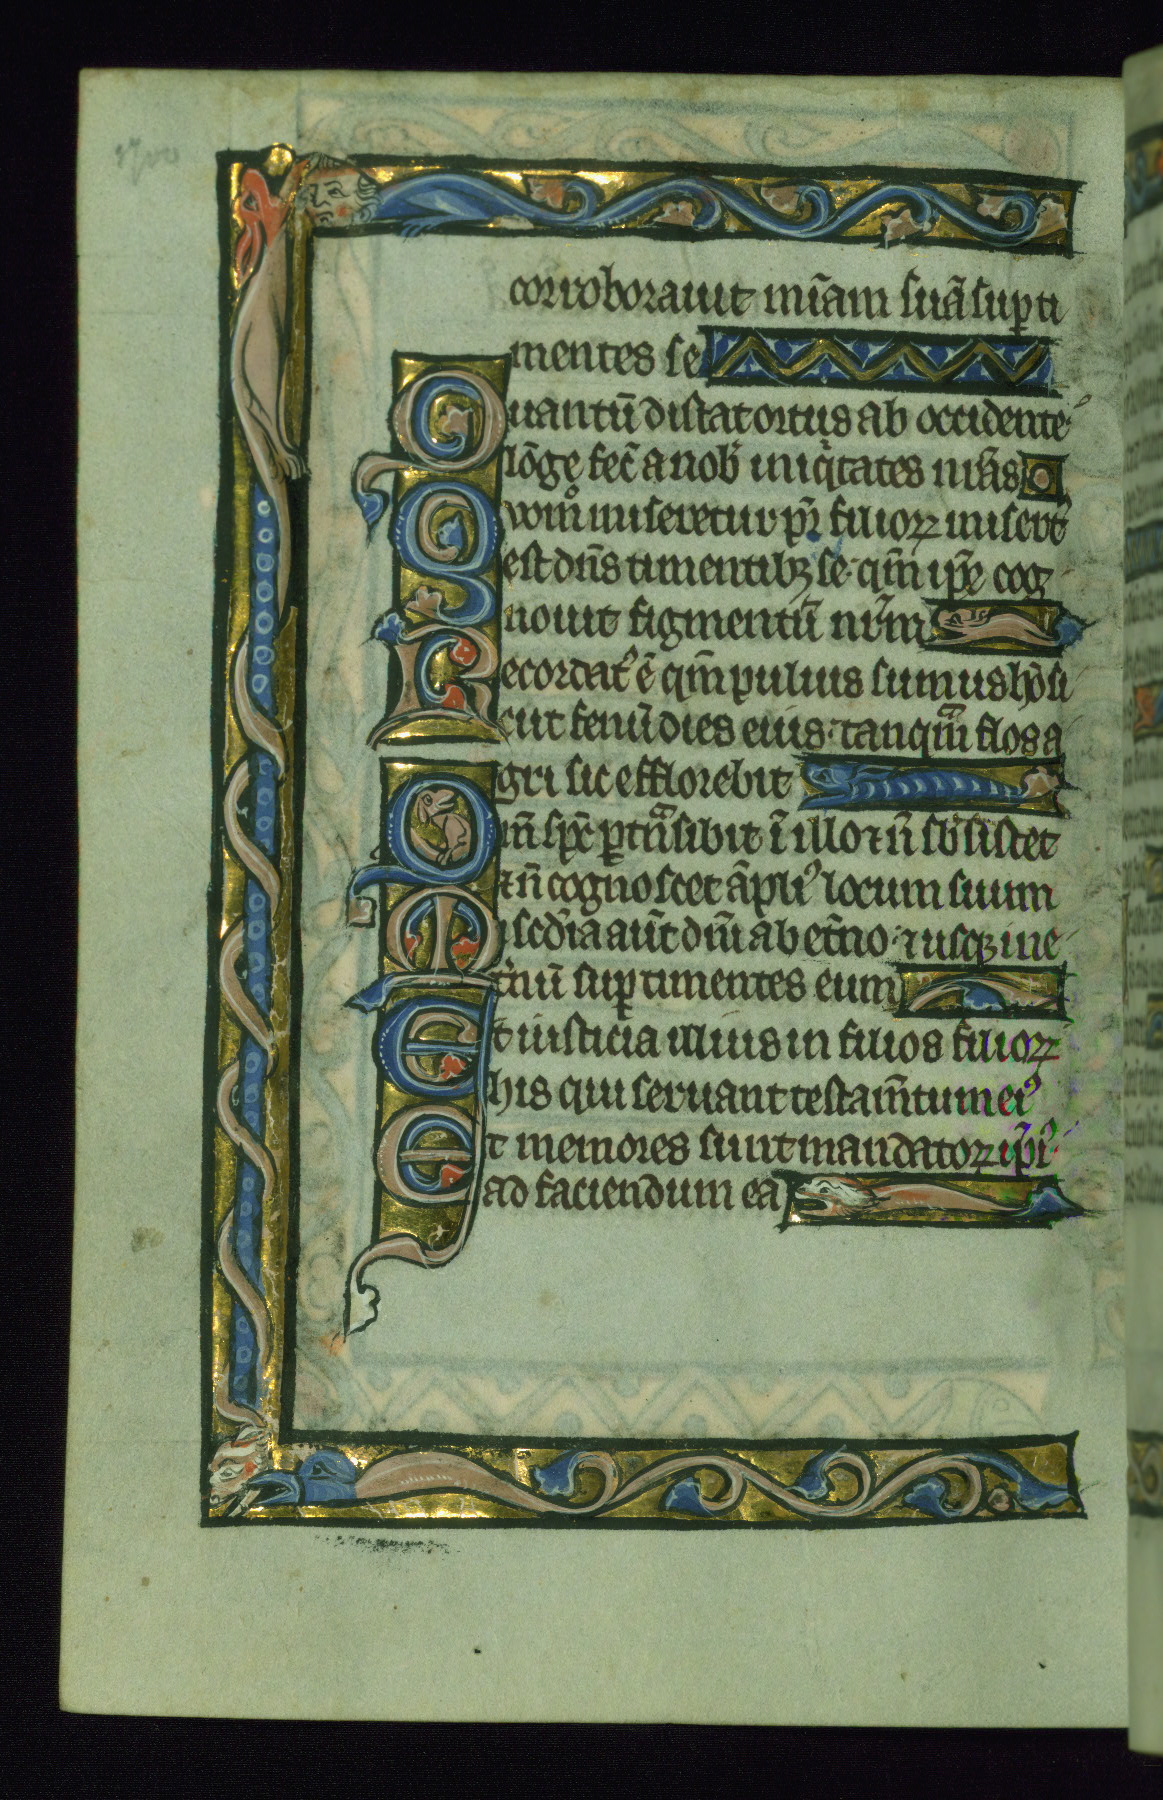 corroborauit mĩam suã sup ti
mentes se
Quantũ distat ortus ab occidente·
lõge fec̃ a nob̃ iniq̃tates nr̃as
Quom̊ miseretur pr̃ filioꝝ misert᷒
est dñs timentibꝫ se· qm̃ ip̃e cog
nouit figmentũ nr̃m
Recordat᷒ ẽ qm̃ puluis sumus hõ si
cut fenũ dies eius· tanqm̃ flos a
gri sic efflorebit
Qm̃ spc̃ ꝑtñsibit ĩ illo ⁊ ñ sb̃sistet
⁊ ñ cognoscet ãpliꝰ locum suum
Miscd̃ia aũt dñi ab et̃no· ⁊ usqꝫ in e
t̃nũ suꝑ timentes eum
Et iusticia illius in filios filioꝝ
his qui seruant testam̃tum eiꝰ
Et memores sunt mandatoꝝ ip̃iꝰ
ad faciendum ea